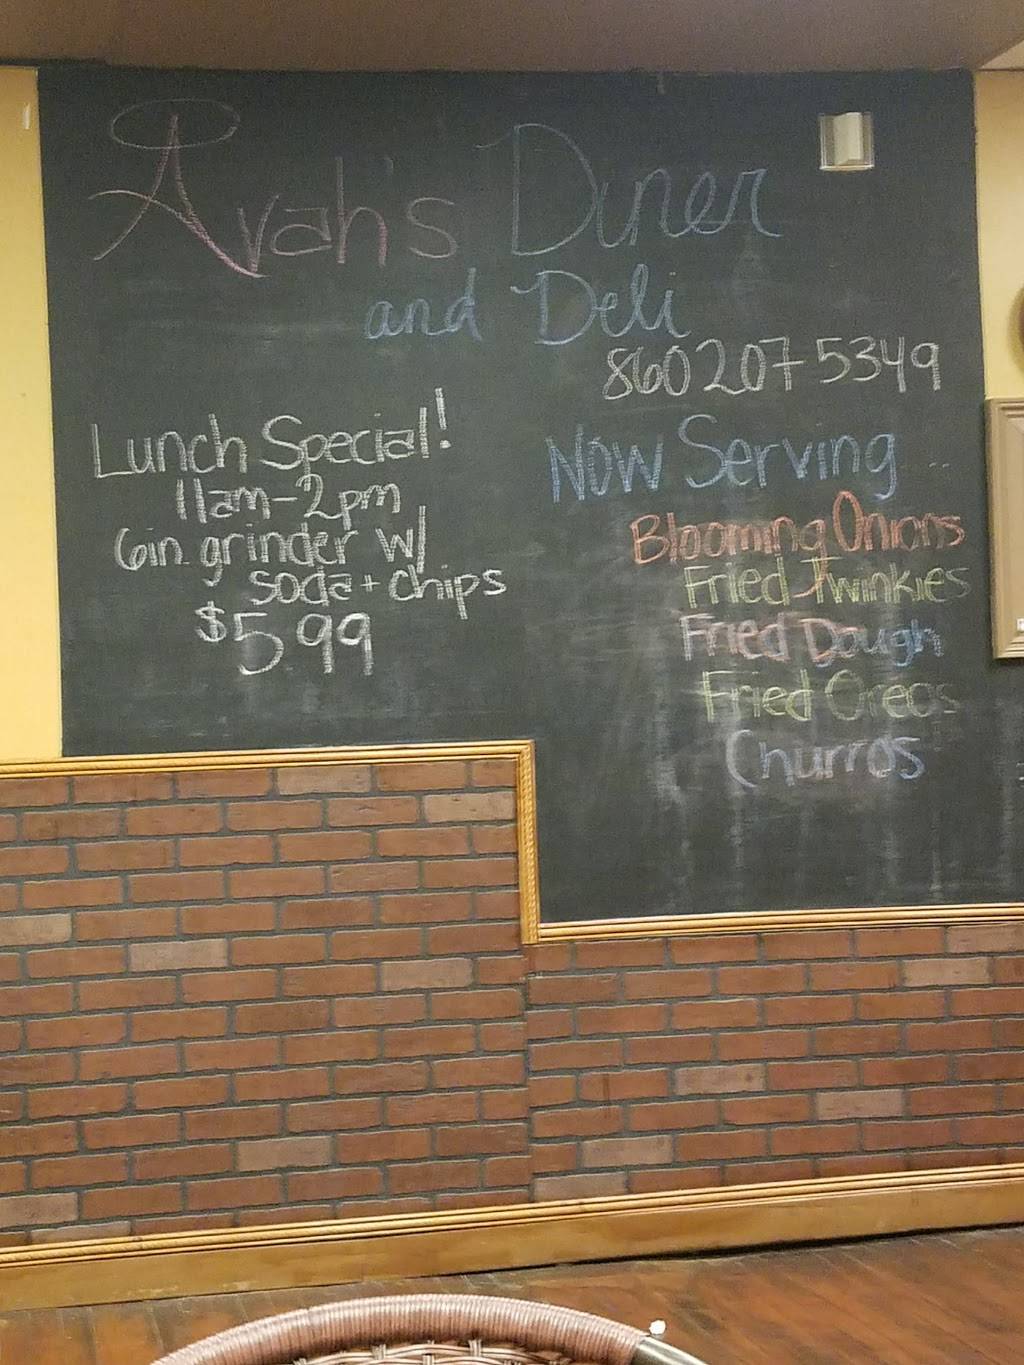 Avah's Diner
and Deli
860 207 5349
Lunch Special!
11am-2pm
6in grinder w/
soda + chips
$5.99
Now Serving...
Blooming Onions
Fried Twinkies
Fried Dough
Fried Oreos
Churros